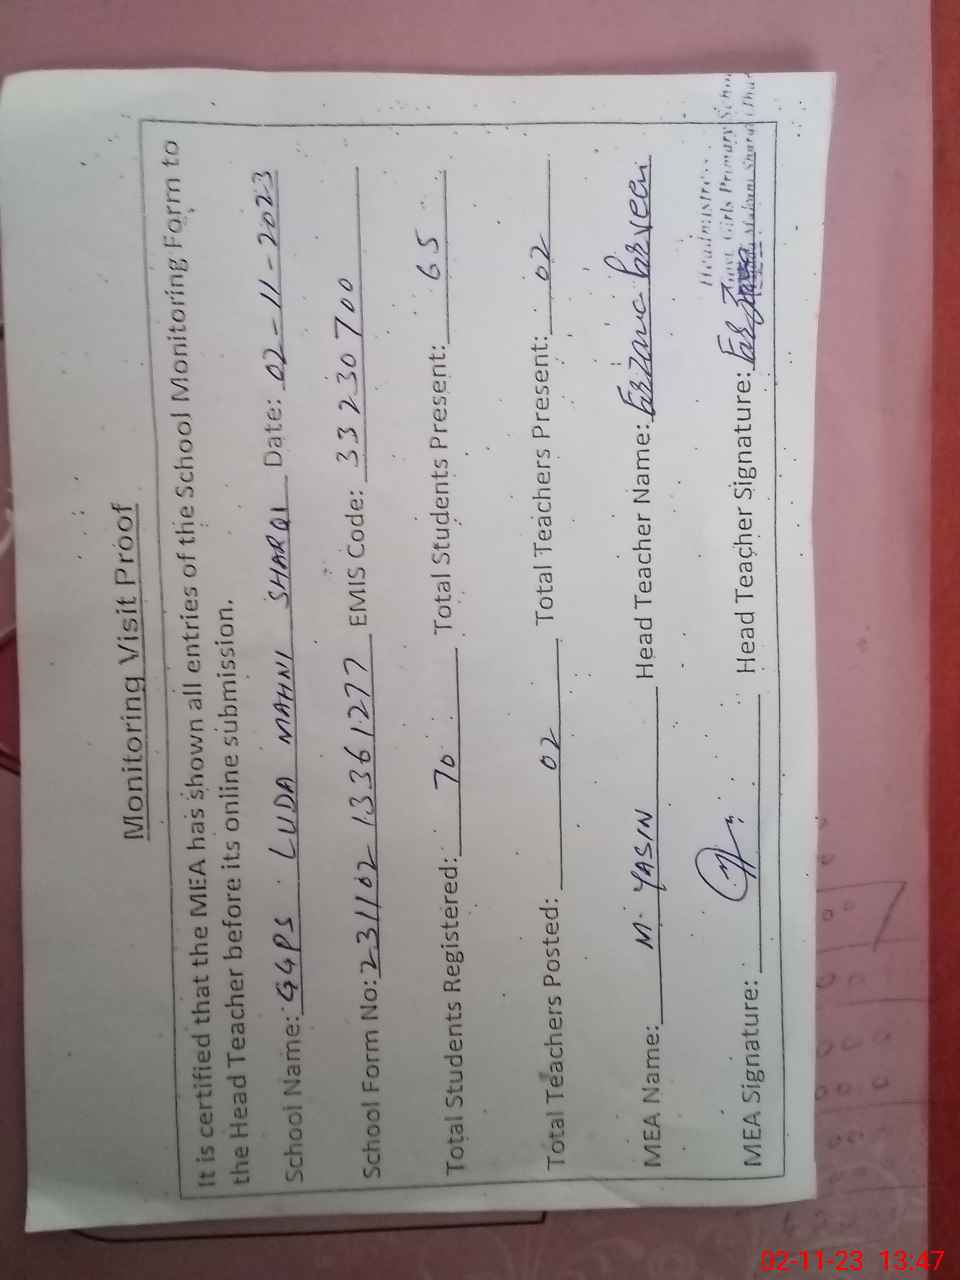 Monitoring Visit Proof
It is certified that the MEA has shown all entries of the School Monitoring Form to
the Head Teacher before its online submission.
School Name: GGPS LUDA MAHNI SHARQI Date: 02-11-2023
School Form No: 231102 13361277 EMIS Code: 33230700
Total Students Registered: 70 Total Students Present: 65
Total Teachers Posted: 02 Total Teachers Present: 02
MEA Name: M. YASIN Head Teacher Name: Farzana Parveen
Headmistress
Govt. Girls Primary School
MEA Signature: Head Teacher Signature: Farzana
02-11-23 13:47